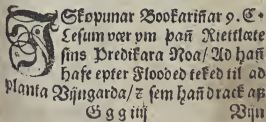 I Skopunar Bookariñar 9. C.
Lesum vær ym pañ Riettlæte
sins Predikara Noa/ Ad hañ
hafe epter Flooded teked til ad
planta Vijngarda/ z sem hañ drack aff
G g g iiij Vijn